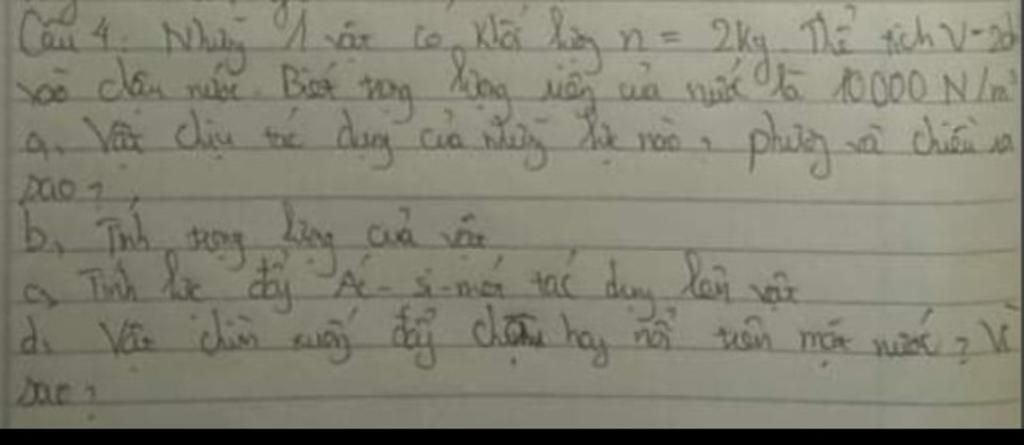 Câu 4: Nhúng 1 vật có khối lượng n = 2kg. Thể tích V=2d
vào chậu nước. Biết trọng lượng riêng của nước là 10000 N/m³
a, Vật chịu tác dụng của những lực nào, phương và chiều ra
sao?
b, Tính trọng lượng của vật
c, Tính lực đẩy Ác-si-mét tác dụng lên vật
d, Vật chìm xuống đáy chậu hay nổi trên mặt nước? Vì
sao?